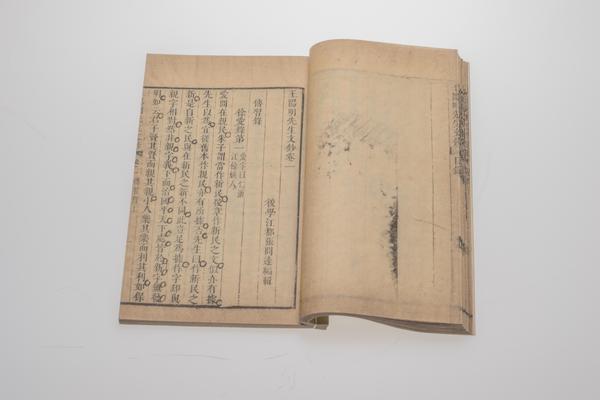 王陽明先生文鈔卷一
後學江都張問達編輯
傳習錄
徐愛錄第一
愛字曰仁
江餘姚人
愛問在親民朱子謂當作新民後章作新民之文似亦有據
先生以為宜從舊本作親民亦有所據否先生曰作新民之
新是自新之民與在新民之新不同此豈足為據作字却與
親字相對然非親字義下面治國平天下處皆於新字無發
明如云君子賢其賢而親其親小人樂其樂而利其利如保